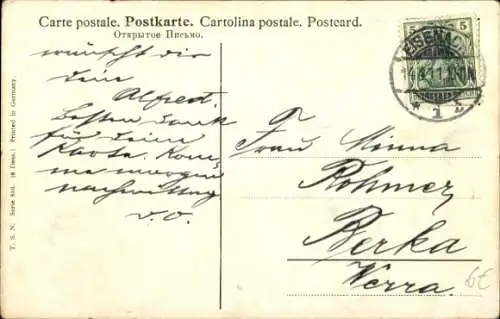 Carte postale. Postkarte. Cartolina postale. Postcard.
Открытое Письмо.
5 5
EISENACH
11
* 1
wünscht dir
dein
Alfred.
Besten Dank
für deine
Karte. Kom-
me morgen
nachmittag
d. O.
Frau Minna
Rohmer
Berka
Werra.
6€
T. S. N. Serie (16 Dess.) Printed in Germany.